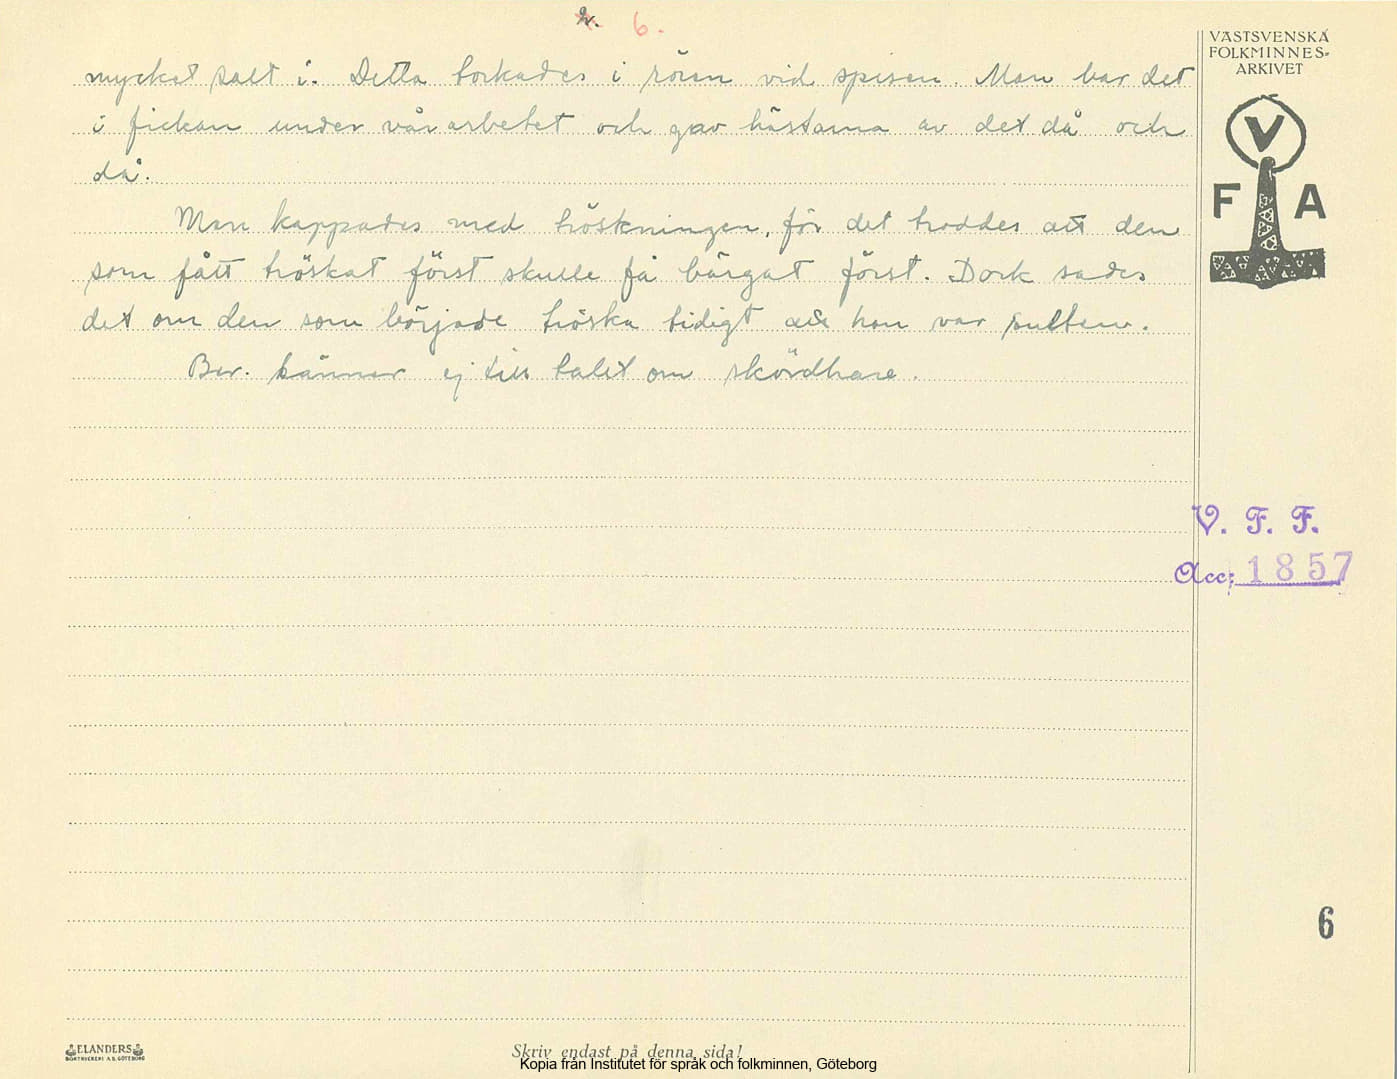 2. 6.
mycket salt i. Detta torkades i röven vid spisen. Man bar det
i fickan under vårarbetet och gav hästarna av det då och
då.
Man kappades med tröskningen, för det troddes att den
som fått tröskat först skulle få bärgat först. Dock sades
det om den som började tröska tidigt att han var sulten.
Ber. känner ej till talet om skördhare.
VÄSTSVENSKA
FOLKMINNES-
ARKIVET
V
F A
V. F. F.
Acc: 1857
6
ELANDERS
BOKTRYCKERI A.B. GÖTEBORG
Skriv endast på denna sida!
Kopia från Institutet för språk och folkminnen, Göteborg